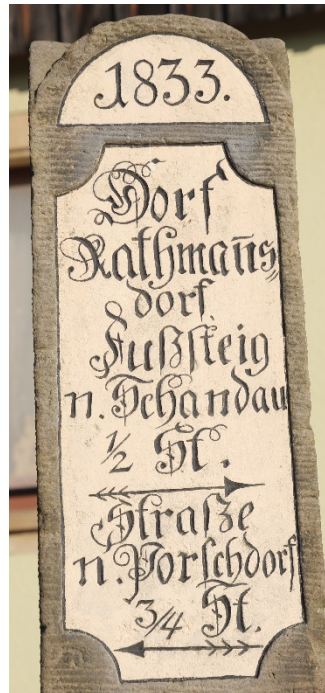 1833.
Dorf
Rathman̄s⸗
dorf.
Fußsteig
n. Schandau
1/2 St.
Straße
n. Porschdorf
3/4 St.